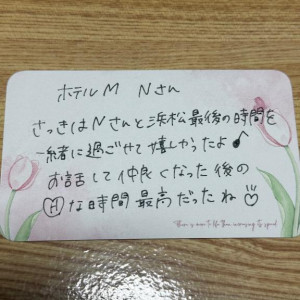 ホテルM Nさん
さっきはNさんと浜松最後の時間を
一緒に過ごせて嬉しかったよ♪
お話して仲良くなった後の
Ⓗな時間最高だったね♡